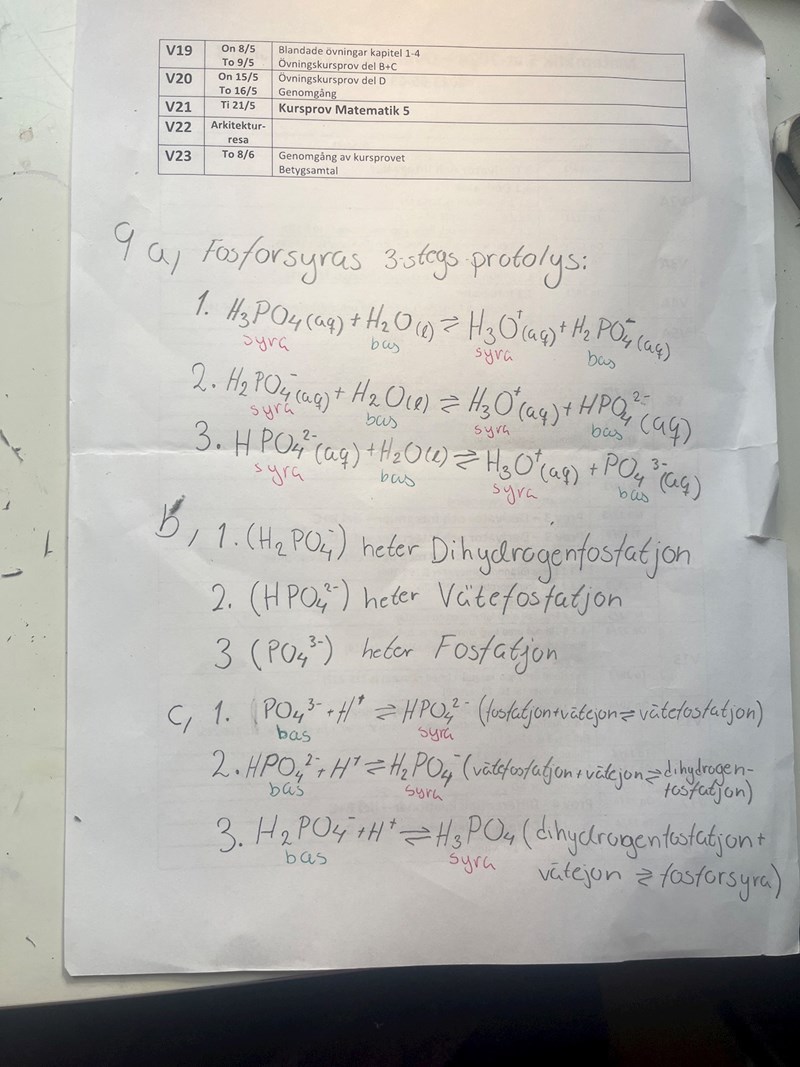 V19 On 8/5 Blandade övningar kapitel 1-4
To 9/5 Övningskursprov del B+C
V20 On 15/5 Övningskursprov del D
To 16/5 Genomgång
V21 Ti 21/5 Kursprov Matematik 5
V22 Arkitektur-
resa
V23 To 8/6 Genomgång av kursprovet
Betygsamtal
9 a, Fosforsyras 3-stegs protolys:
1. H₃PO₄(aq) + H₂O(l) ⇌ H₃O⁺(aq) + H₂PO₄⁻(aq)
syra bas syra bas
2. H₂PO₄⁻(aq) + H₂O(l) ⇌ H₃O⁺(aq) + HPO₄²⁻(aq)
syra bas syra bas
3. HPO₄²⁻(aq) + H₂O(l) ⇌ H₃O⁺(aq) + PO₄³⁻(aq)
syra bas syra bas
b, 1. (H₂PO₄⁻) heter Dihydrogenfosfatjon
2. (HPO₄²⁻) heter Vätefosfatjon
3 (PO₄³⁻) heter Fosfatjon
c, 1. PO₄³⁻ + H⁺ ⇌ HPO₄²⁻ (fosfatjon+vätejon ⇌ vätefosfatjon)
bas syra
2. HPO₄²⁻ + H⁺ ⇌ H₂PO₄⁻ (vätefosfatjon+vätejon ⇌ dihydrogen-
bas syra fosfatjon)
3. H₂PO₄⁻ + H⁺ ⇌ H₃PO₄ (dihydrogenfosfatjon+
bas syra vätejon ⇌ fosforsyra)